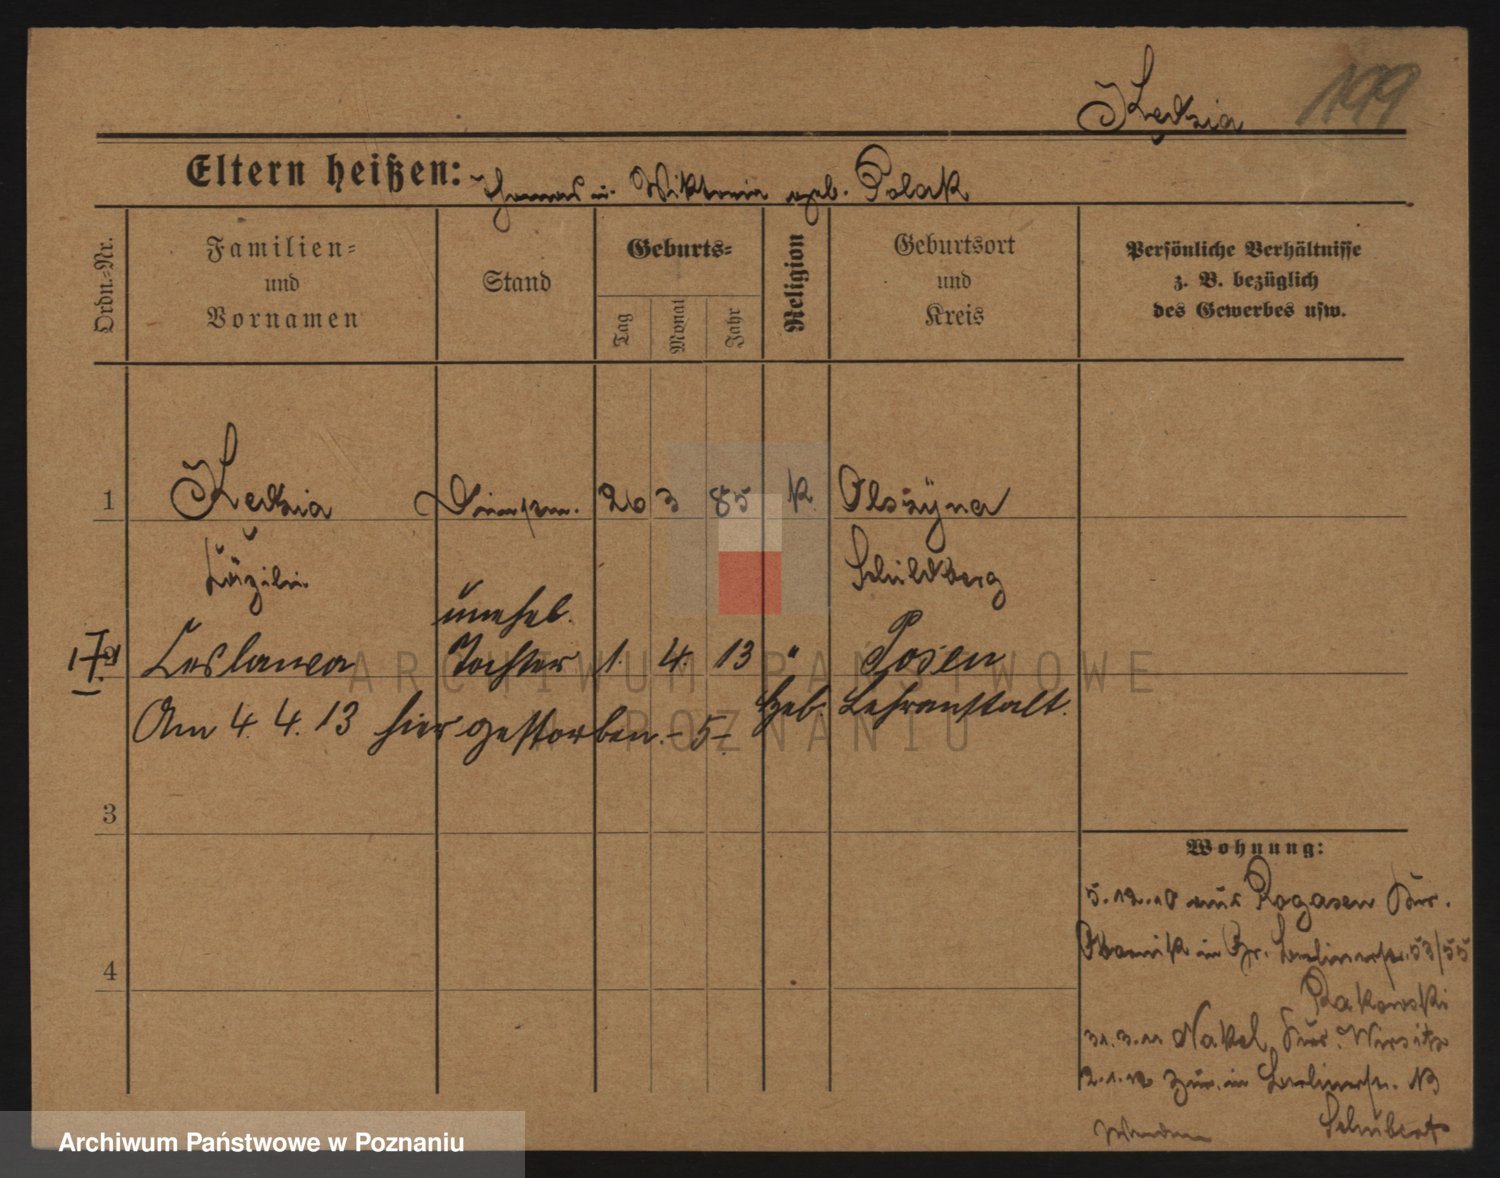 Kędzia 199
Eltern heißen: Thomas u. Wiktoria geb. Polak
Ordn.-Nr.
Familien-
und
Vornamen
Stand
Geburts-
Tag
Monat
Jahr
Religion
Geburtsort
und
Kreis
Persönliche Verhältnisse
z. B. bezüglich
des Gewerbes usw.
1 Kedzia 26 3 85 k. Olszyna
Schildberg
unehel.
Ceslawa Tochter 1. 4. 13 " Posen
Am 4. 4. 13 hier gestorben. - 5 - Heb. Lehranstalt.
3
4
Wohnung:
5.12.10 aus Rogasen Kr.
Obornik in Gr. Berlinerstr. 53/55
Rakowski
31.3.11 Nakel, Kr. Wirsitz
2.1.12 zur. in Berlinerstr. 13
Schubert
wenden
ARCHIWUM PAŃSTWOWE
W POZNANIU
Archiwum Państwowe w Poznaniu